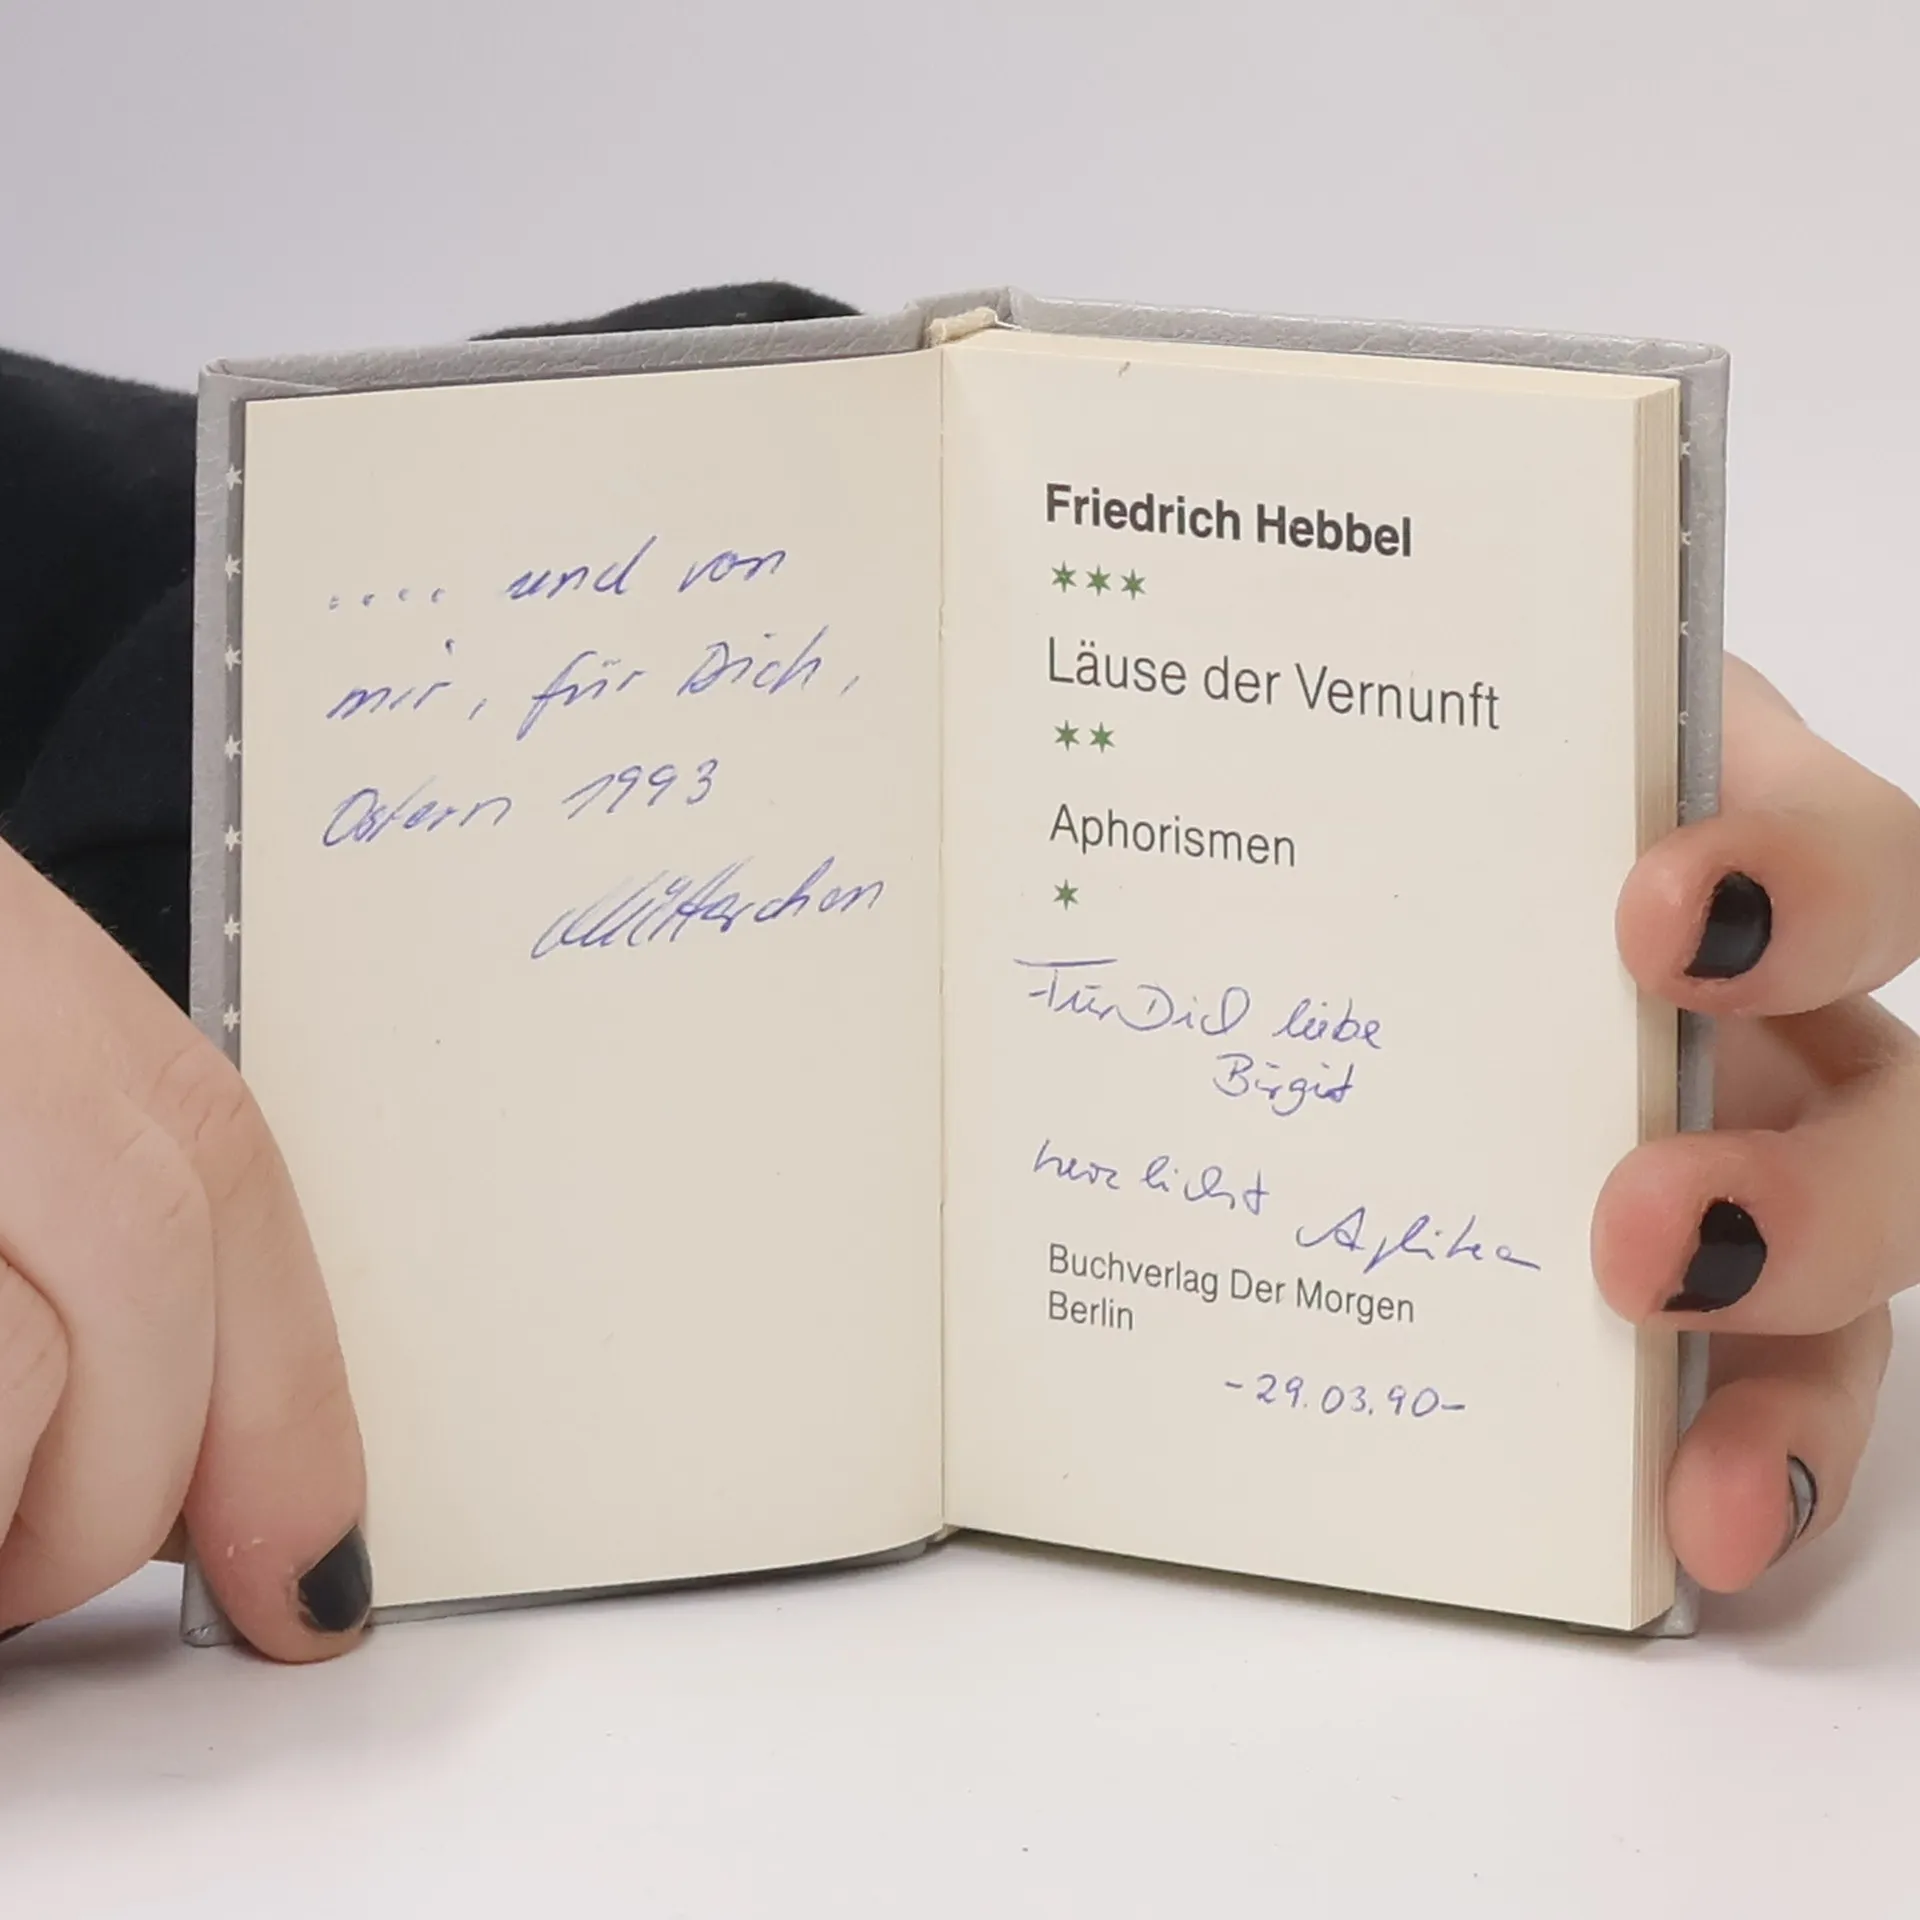 .... und von
mir, für Dich,
Ostern 1993
Mütterchen
Friedrich Hebbel
***
Läuse der Vernunft
**
Aphorismen
*
Für Dich liebe
Birgit
herzlichst
Buchverlag Der Morgen
Berlin
-29.03.90-